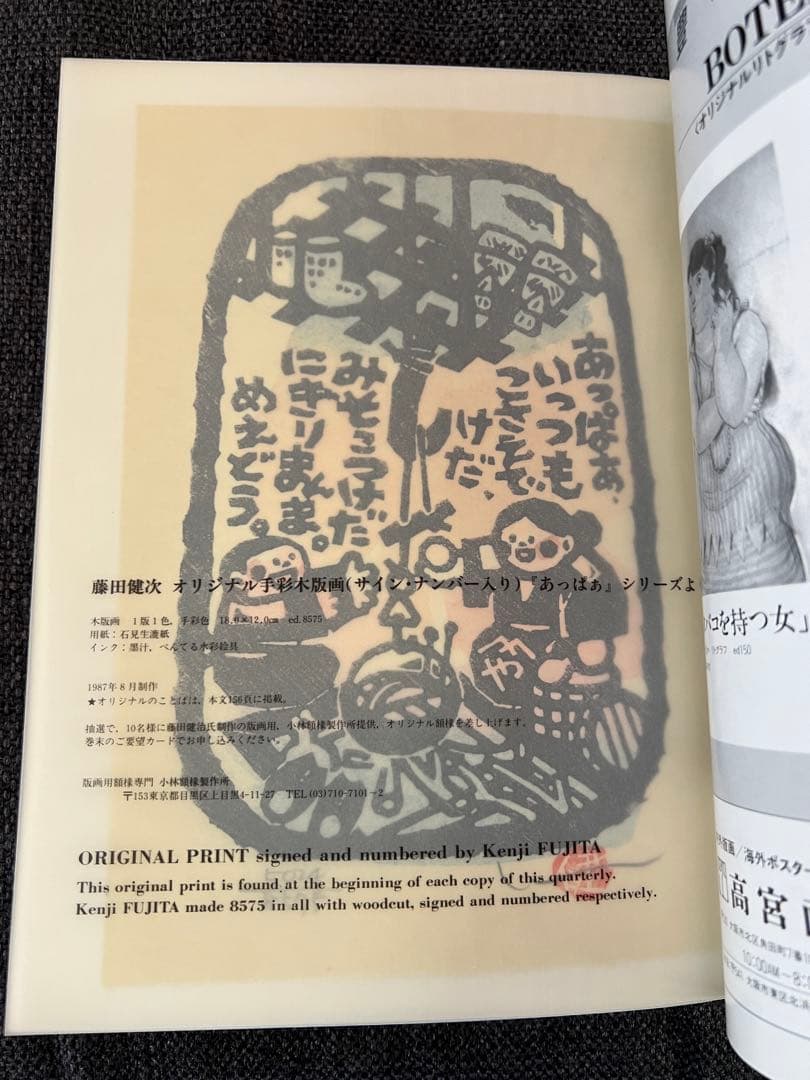 あっぱぁ、
いっつも
こさえで
けだ、
みそつけだ
にぎりまんま。
めえどう。
藤田健次 オリジナル手彩木版画(サイン・ナンバー入り)『あっぱぁ』シリーズよ
木版画 1版1色、手彩色 18.0×12.0cm ed.8575
用紙:石見生漉紙
インク:墨汁、ぺんてる水彩絵具
1987年8月制作
★オリジナルのことばは、本文156頁に掲載。
抽選で、10名様に藤田健治氏制作の版画用、小林額椽製作所提供、オリジナル額椽を差し上げます。
巻末のご要望カードでお申し込みください。
版画用額椽専門 小林額椽製作所
〒153東京都目黒区上目黒4-11-27 TEL(03)710-7101-2
ORIGINAL PRINT signed and numbered by Kenji FUJITA
This original print is found at the beginning of each copy of this quarterly.
Kenji FUJITA made 8575 in all with woodcut, signed and numbered respectively.
BOTE
(オリジナルリトグラフ
コを持つ女」
ed150
版画/海外ポスター
高宮画
10:00AM〜8:0